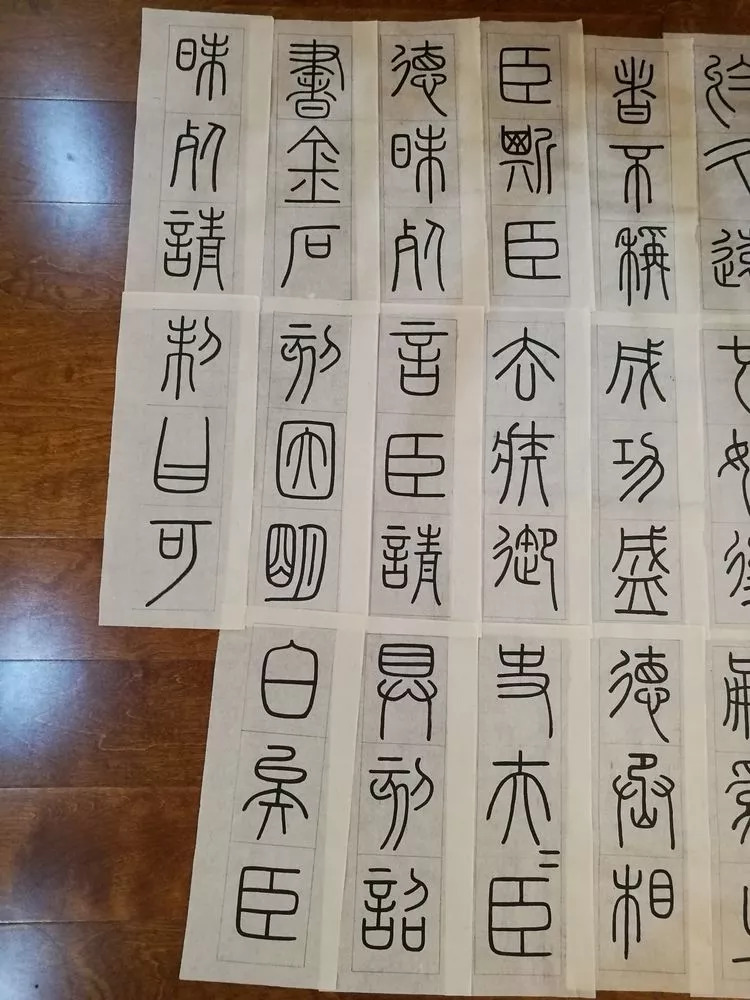 於久遠也如後嗣為之
者不稱成功盛德丞相
臣斯臣去疾御史夫=臣
德昧死言臣請具刻詔
書金石刻因明白矣臣
昧死請制曰可